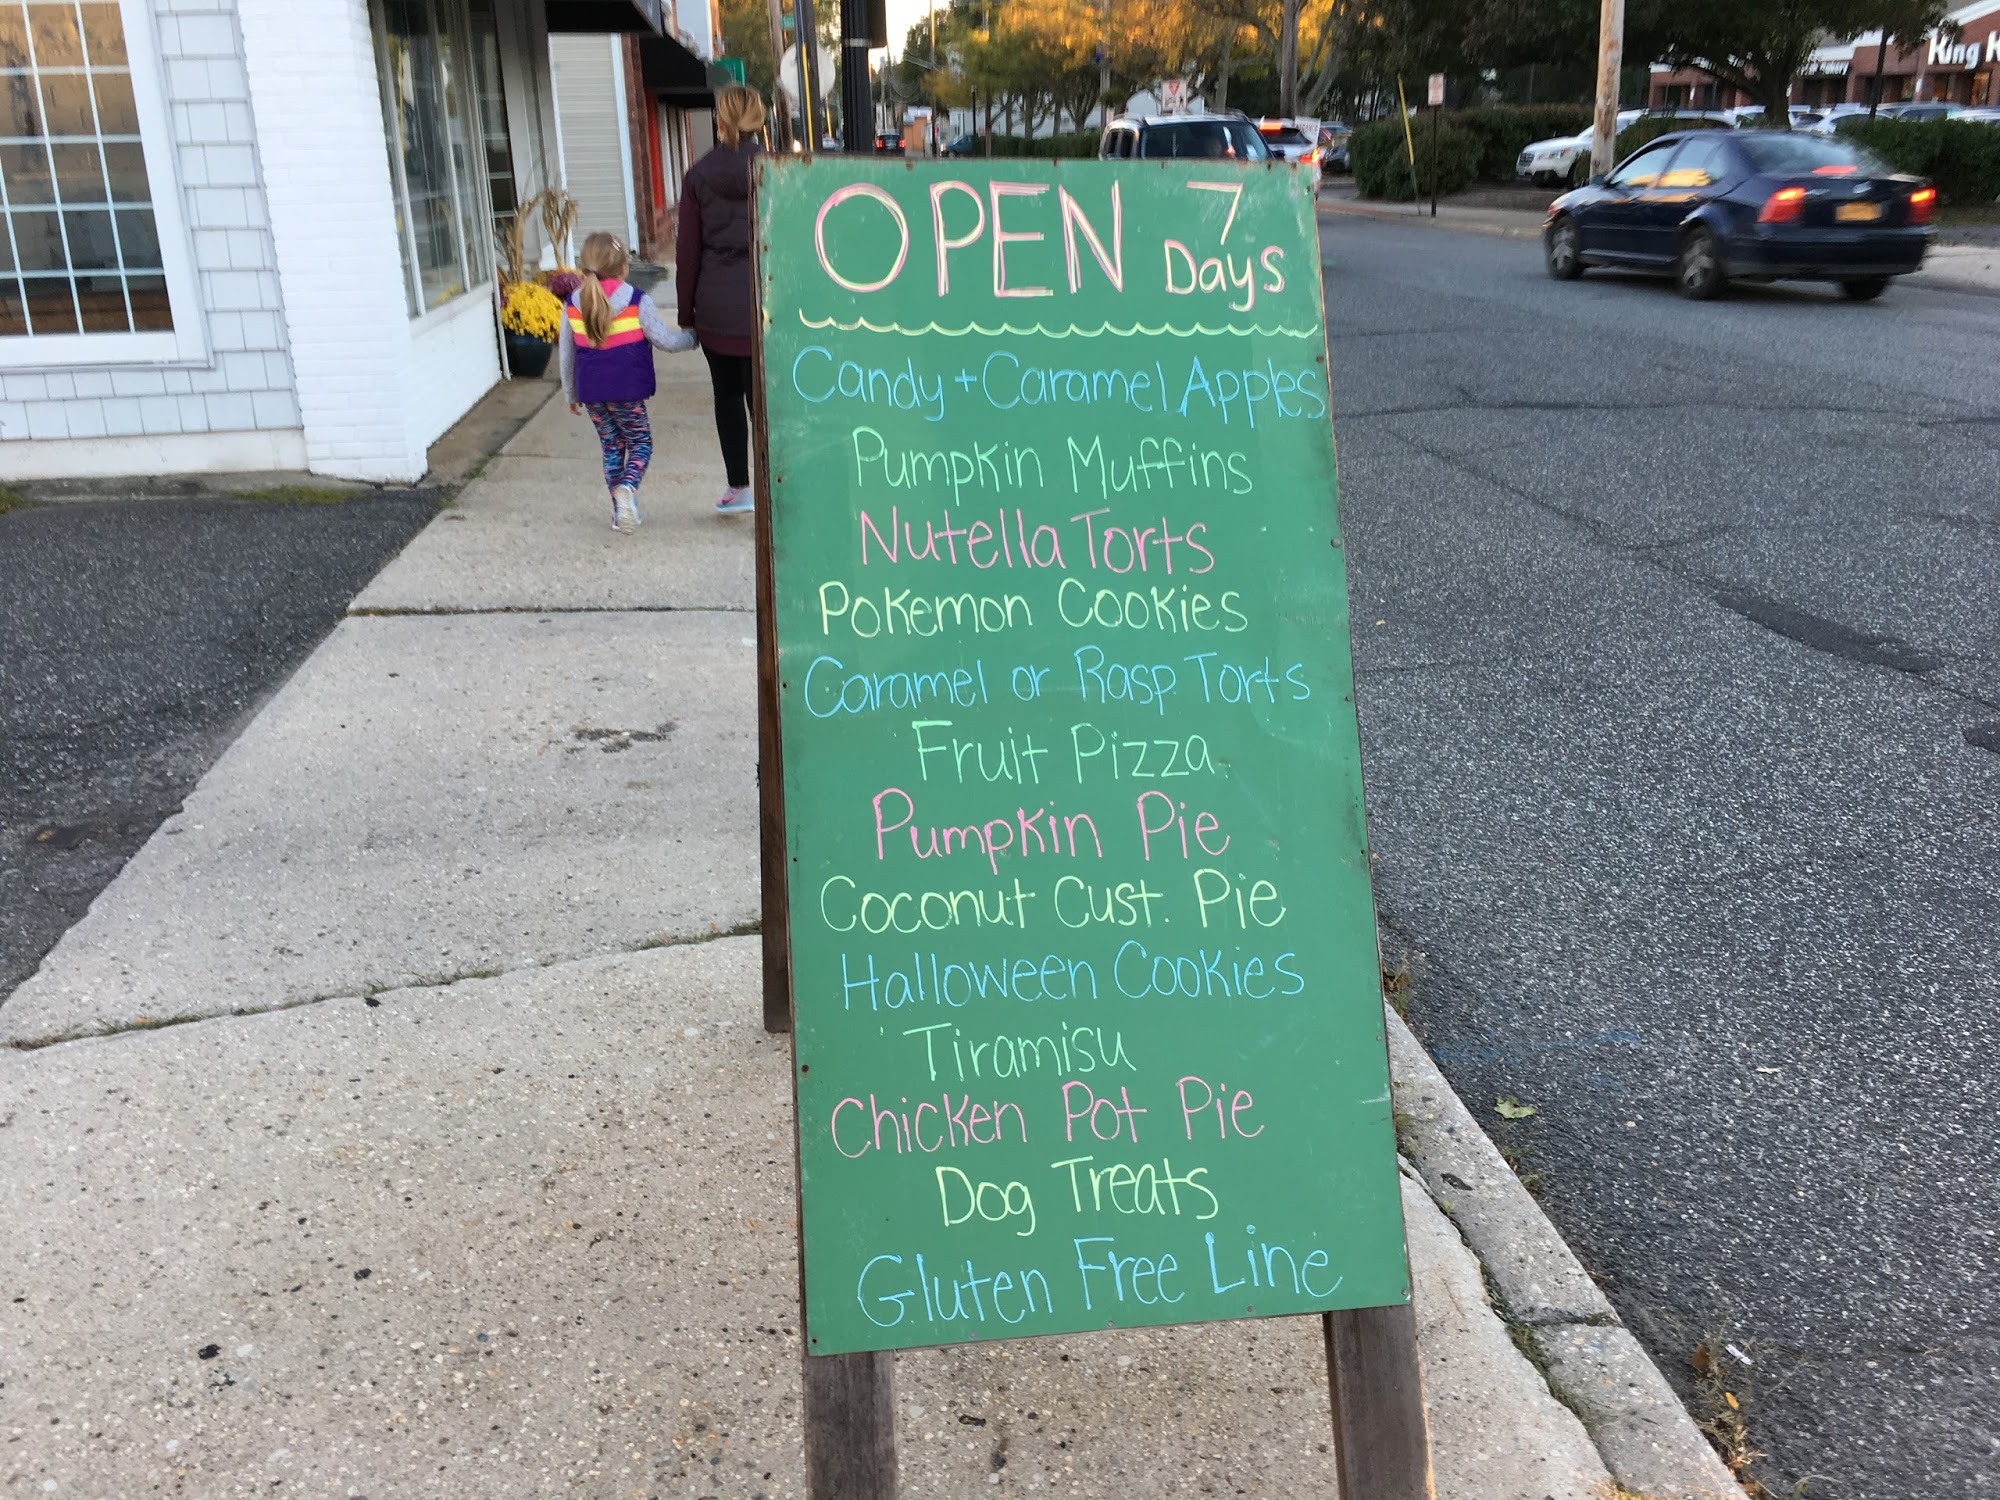 OPEN 7 Days
Candy + Caramel Apples
Pumpkin Muffins
Nutella Torts
Pokemon Cookies
Caramel or Rasp. Torts
Fruit Pizza
Pumpkin Pie
Coconut Cust. Pie
Halloween Cookies
Tiramisu
Chicken Pot Pie
Dog Treats
Gluten Free Line
King